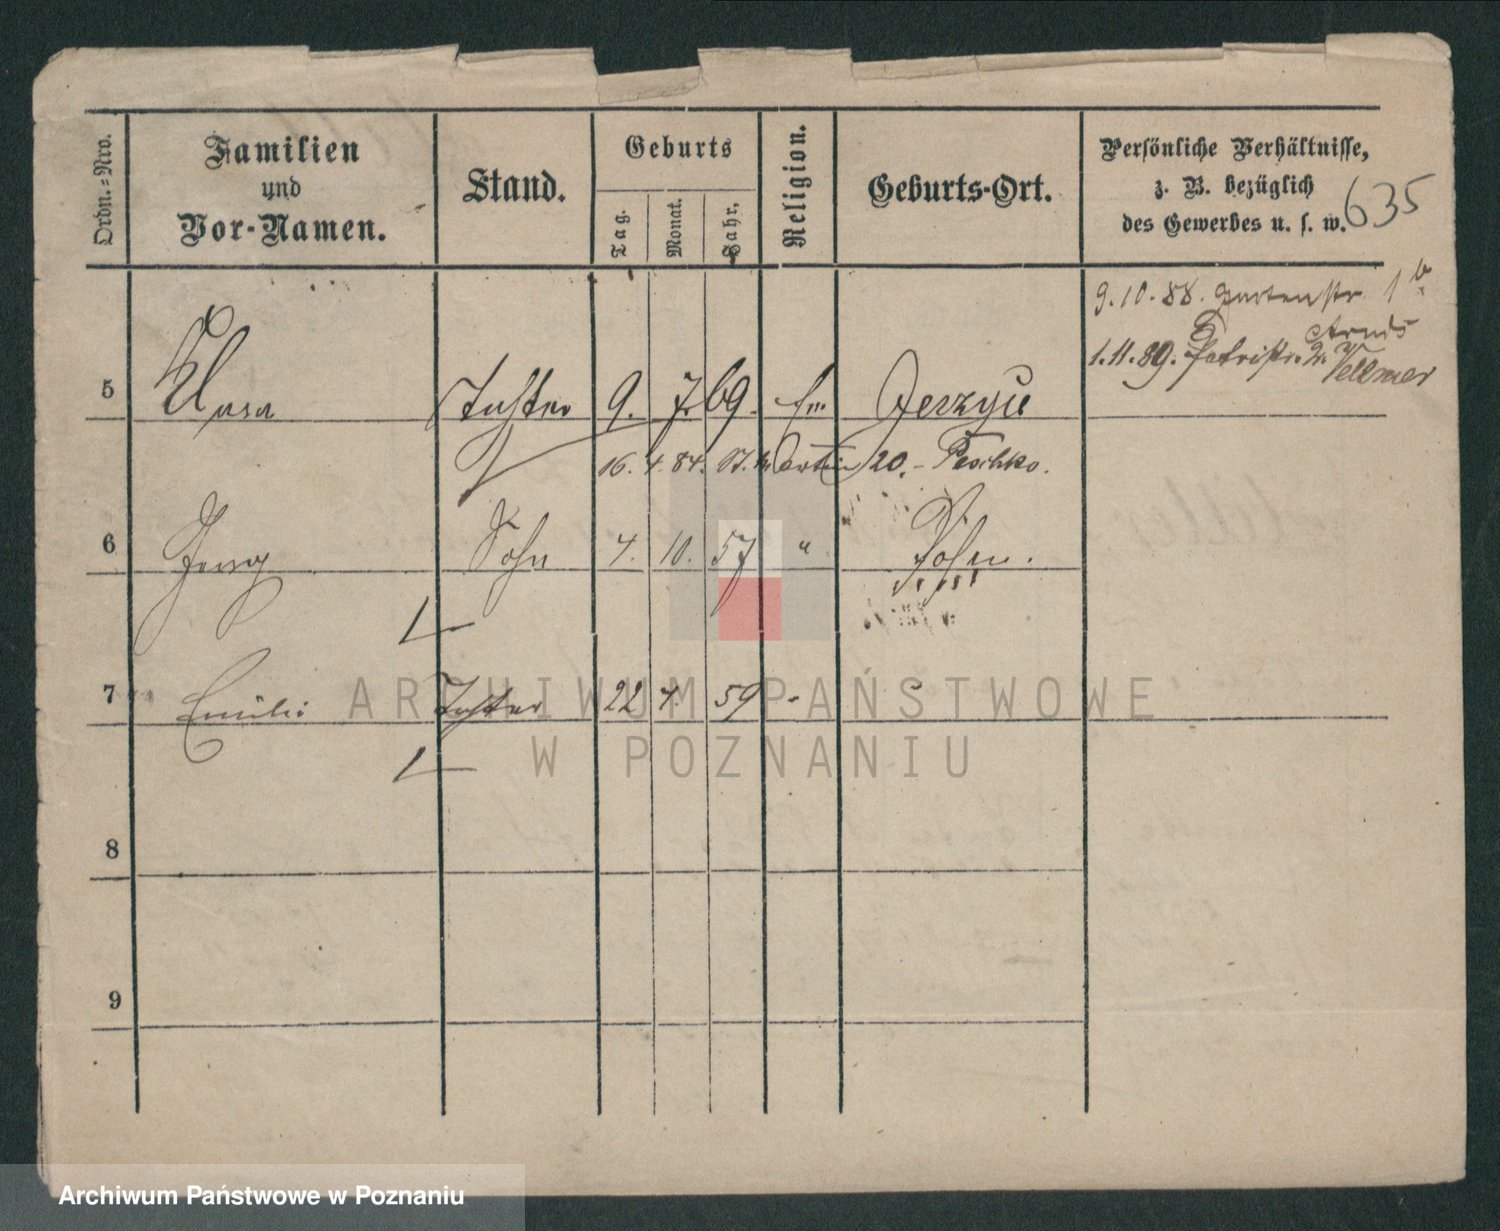 Ordn.-Nro.
Familien
und
Vor-Namen.
Stand.
Geburts
Tag.
Monat.
Jahr.
Religion.
Geburts-Ort.
Persönliche Verhältnisse,
z. B. bezüglich
des Gewerbes u. s. w.
635
9.10.88. Gartenstr 1b
Arnds
1.11.89. Petristr. 2. Vellmer
5 Klara Tochter 9. 7. 69. Jerzyce
16. 4. 84. St. Martin 20. - Peschko.
6 Georg Sohn 4. 10. 57 "
7 Emilie Tochter 22 4. 59 -
8
9
ARCHIWUM PAŃSTWOWE
W POZNANIU
Archiwum Państwowe w Poznaniu